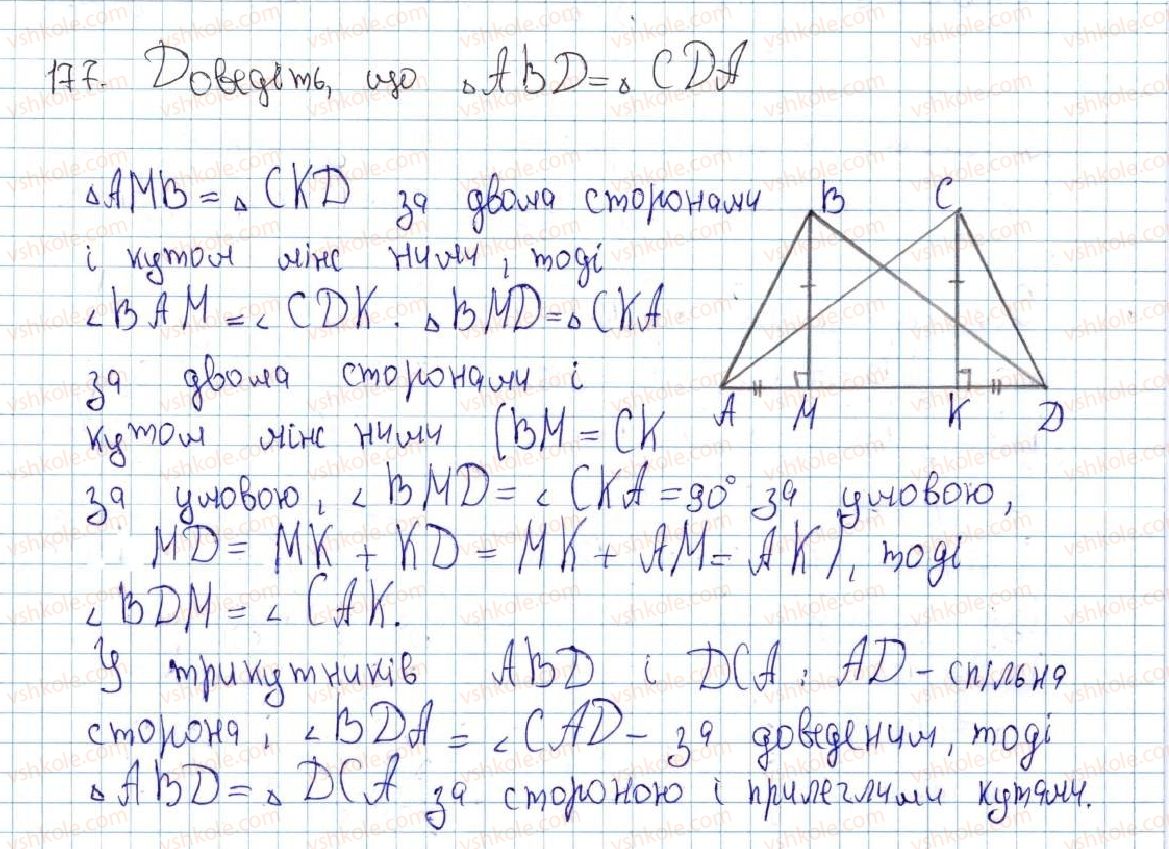 177. Доведіть, що △ABD=△CDA
△AMB=△CKD за двома сторонами
і кутом між ними, тоді
∠BAM=∠CDK. △BMD=△CKA
за двома сторонами і
кутом між ними (BM=CK
за умовою, ∠BMD=∠CKA=90° за умовою,
MD=MK+KD=MK+AM=AK), тоді
∠BDM=∠CAK.
У трикутників ABD і DCA: AD-спільна
сторона; ∠BDA=∠CAD-за доведеним, тоді
△ABD=△DCA за стороною і прилеглими кутами.
B C
A M K D
vshkole.com